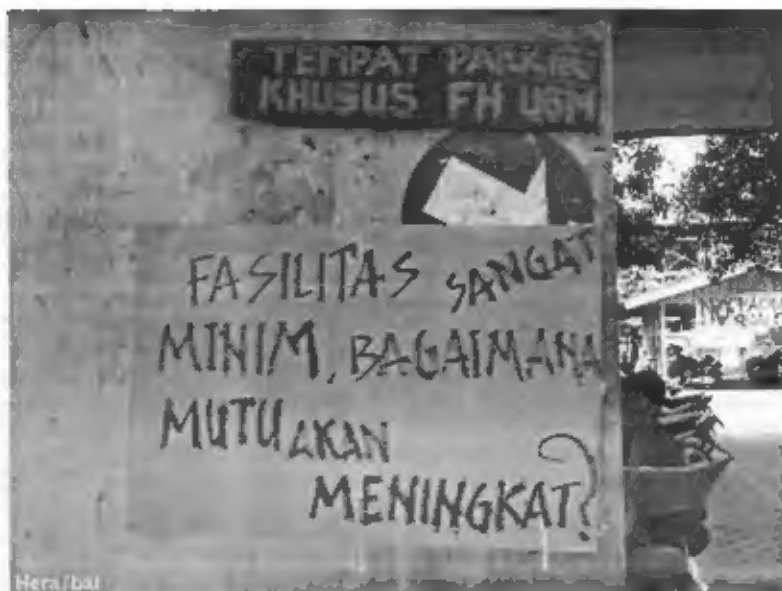 TEMPAT PARKIR
KHUSUS FH UGM
FASILITAS SANGAT
MINIM, BAGAIMANA
MUTU AKAN
MENINGKAT?
Hera/bal